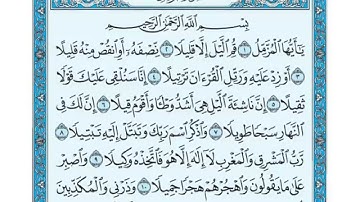 بِسْمِ اللَّهِ الرَّحْمَٰنِ الرَّحِيمِ
يَٰٓأَيُّهَا ٱلْمُزَّمِّلُ ١ قُمِ ٱلَّيْلَ إِلَّا قَلِيلًا ٢ نِّصْفَهُۥٓ أَوِ ٱنقُصْ مِنْهُ قَلِيلًا
٣ أَوْ زِدْ عَلَيْهِ وَرَتِّلِ ٱلْقُرْءَانَ تَرْتِيلًا ٤ إِنَّا سَنُلْقِى عَلَيْكَ قَوْلًا
ثَقِيلًا ٥ إِنَّ نَاشِئَةَ ٱلَّيْلِ هِىَ أَشَدُّ وَطْـًٔا وَأَقْوَمُ قِيلًا ٦ إِنَّ لَكَ فِى
ٱلنَّهَارِ سَبْحًا طَوِيلًا ٧ وَٱذْكُرِ ٱسْمَ رَبِّكَ وَتَبَتَّلْ إِلَيْهِ تَبْتِيلًا ٨
رَّبُّ ٱلْمَشْرِقِ وَٱلْمَغْرِبِ لَآ إِلَٰهَ إِلَّا هُوَ فَٱتَّخِذْهُ وَكِيلًا ٩ وَٱصْبِرْ
عَلَىٰ مَا يَقُولُونَ وَٱهْجُرْهُمْ هَجْرًا جَمِيلًا ١٠ وَذَرْنِى وَٱلْمُكَذِّبِينَ